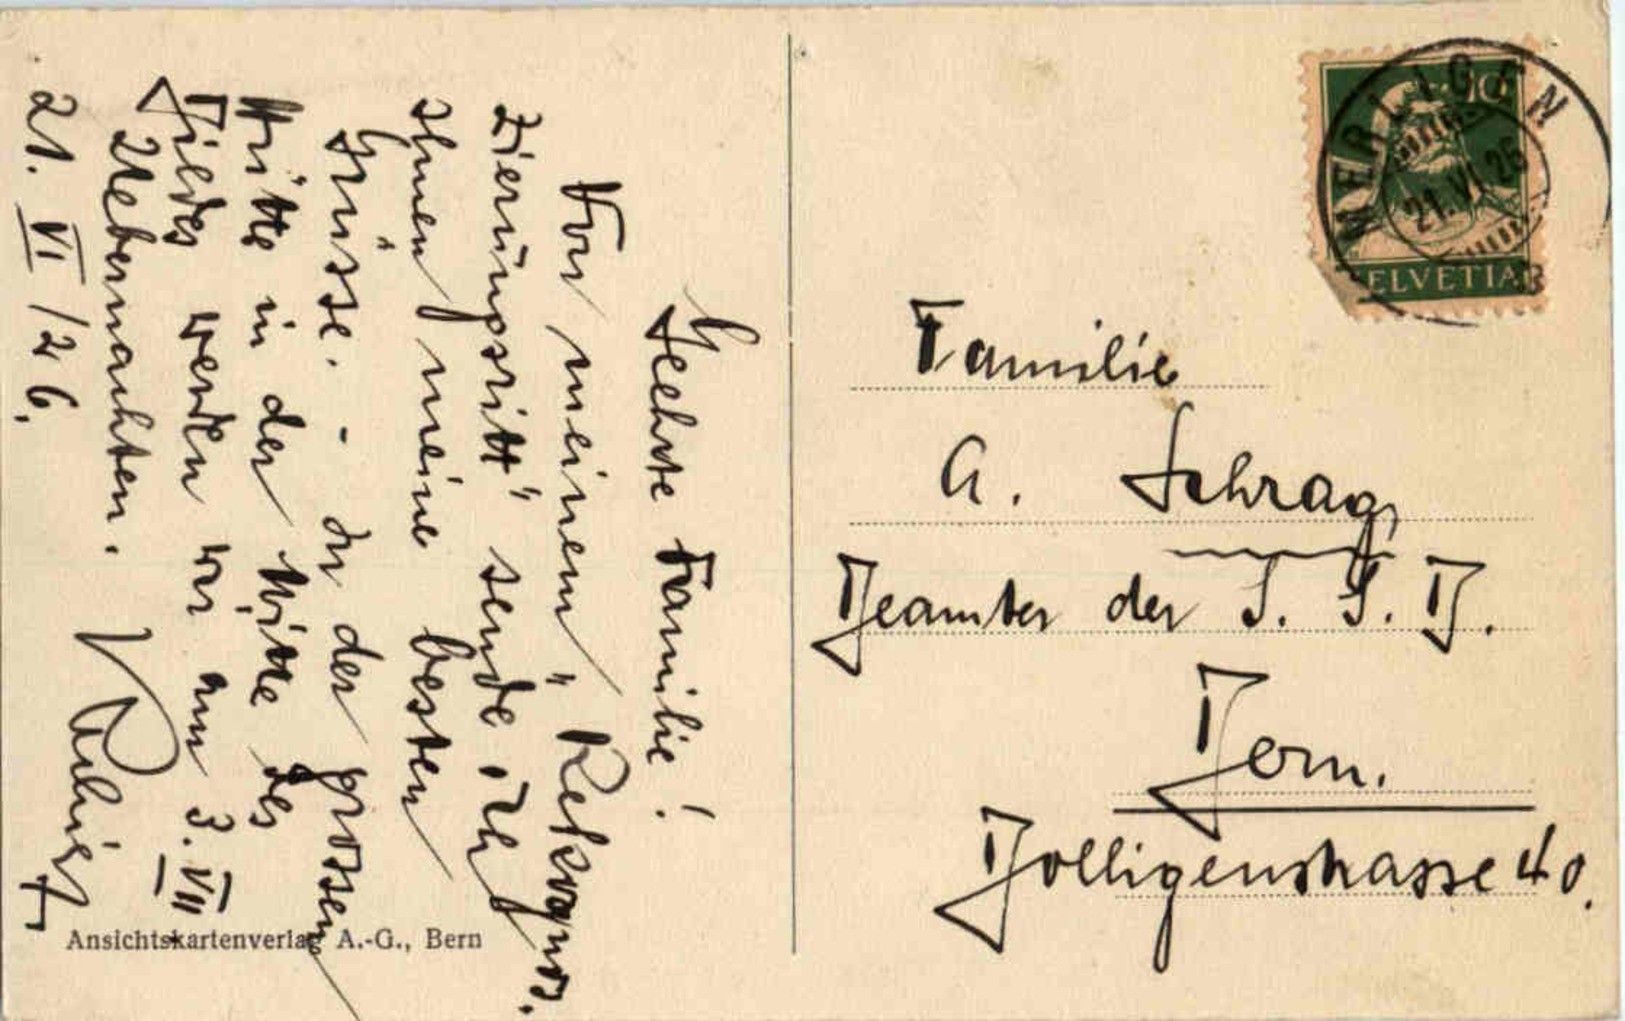 Geehrte Familie!
Von meinem „Rekognos-
zierungsritt" sende ich
Ihnen meine besten
Grüsse. - In der grossen
Hütte in der Mitte des
Bildes werden wir am 3. VII
Uebernachten.
21. VI /26.
Ansichtskartenverlag A.-G., Bern
MERLIGEN
21.VI.26
10
HELVETIA
Familie
A. Schrag
Beamter der S. S. B.
Bern.
Bolligenstrasse 40.